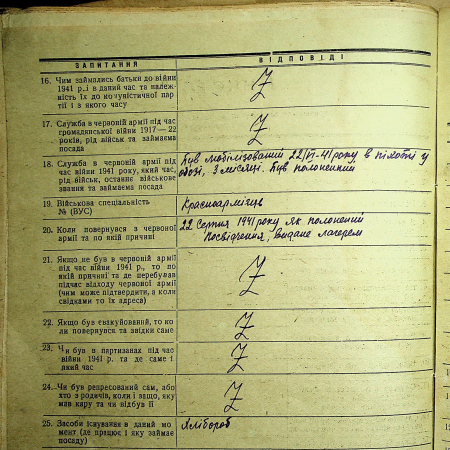 ЗАПИТАННЯ
ВІДПОВІДІ
16. Чим займались батьки до війни
1941 р. і в даний час та належ-
ність їх до комуністичної пар-
тії і в якого часу
Z
17. Служба в червоній армії під час
громадянської війни 1917 — 22
років, рід військ та займаєма
посада
Z
18. Служба в червоній армії під
час війни 1941 року, який час,
рід військ, останнє військове
звання та займаєма посада
Був мобілізований 22/VI-41 року в піхоті у
обозі, 2 місяці. Був полонений
19. Військова спеціальність
№ (ВУС)
Красноармієць
20. Коли повернувся в червоної
армії та по якій причині
22 Серпня 1941 року як полонений
Посвідчення, видане лагерем
21. Якщо не був в червоній армії
під час війни 1941 р., то по
якій причині та де перебував
підчас відходу червоної армії
(чим може підтвердити, а коли
свідками то їх адреса)
Z
22. Якщо був евакуйований, то ко-
ли повернувся та звідки саме
Z
23. Чи був в партизанах під час
війни 1941 р. та де саме і
який час
Z
24. Чи був репресований сам, або
хто з родичів, коли і защо, яку
мав кару та чи відбув її
Z
25. Засоби існування в даний мо-
мент (де працює і яку займає
посаду)
Хлібороб